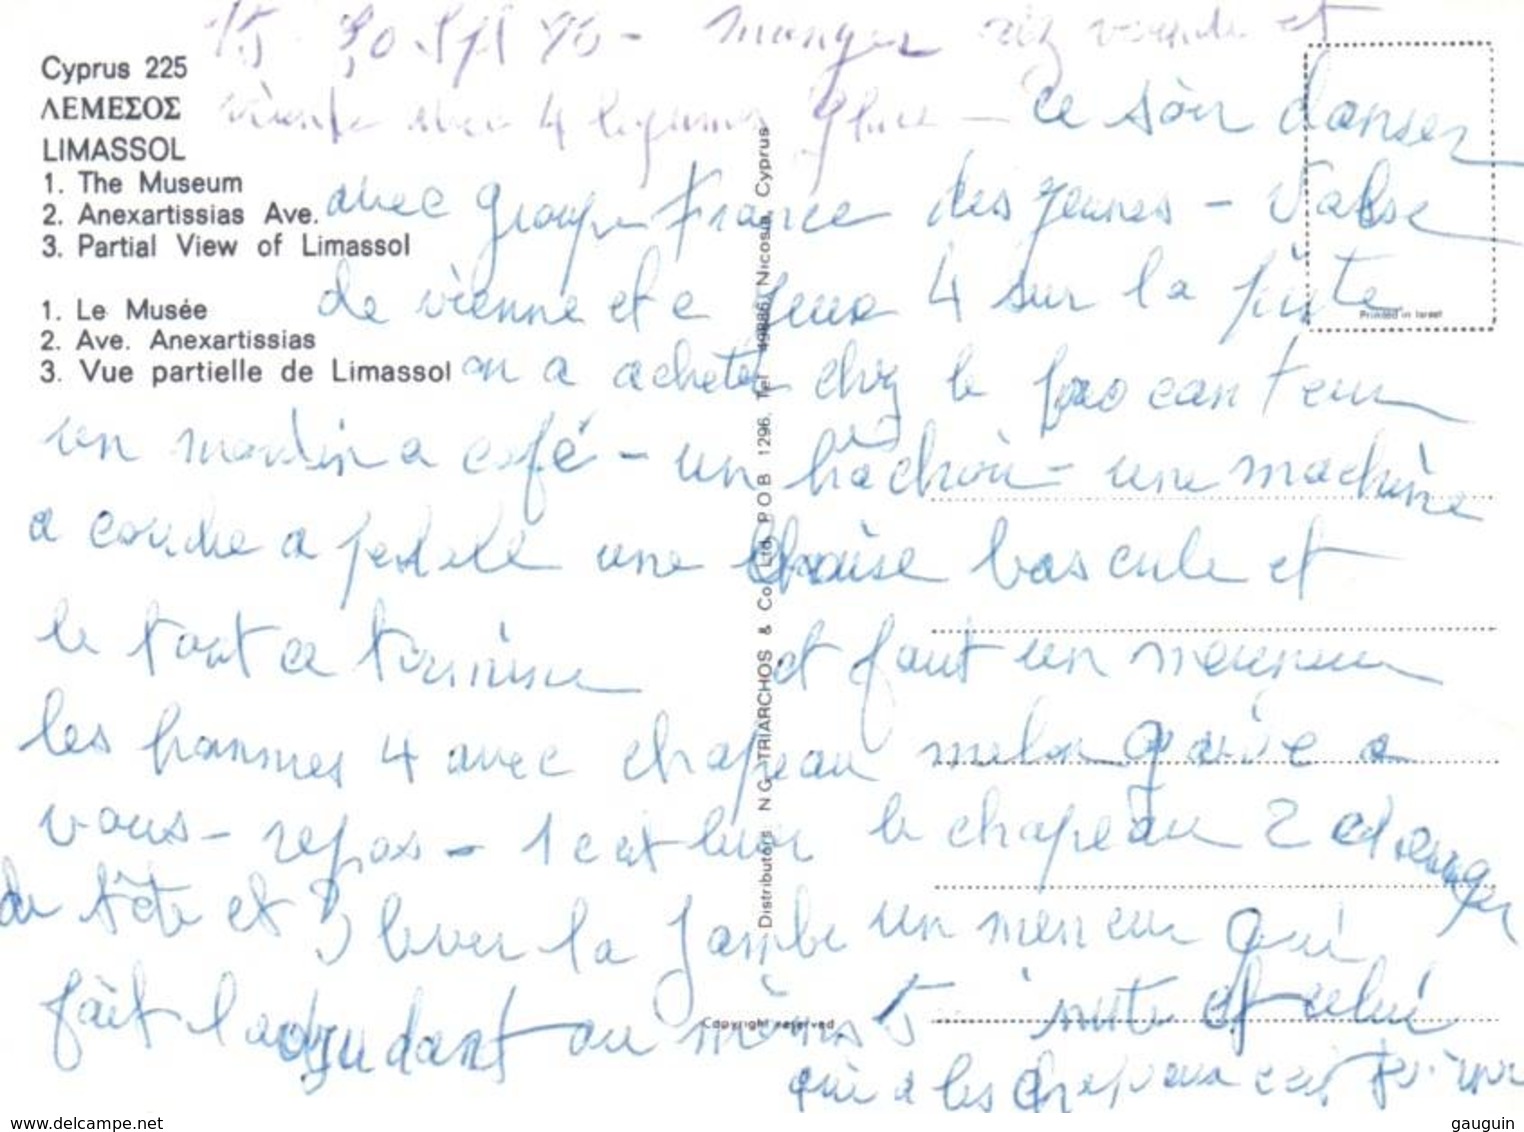 manger riz viande et
Cyprus 225
ΛΕΜΕΣΟΣ
viande avec 4 legumes glace - ce soir danser
LIMASSOL
1. The Museum
2. Anexartissias Ave.
avec groupe France des jeunes - Valse
3. Partial View of Limassol
de vienne et e jeux 4 sur la piste
1. Le Musée
2. Ave. Anexartissias
3. Vue partielle de Limassol
on a acheter chez le brocanteur
un moulin a café - un hachoir - une machine
a coudre a pedale une chaise bascule et
le tout a terminer et faut un meneur
les hommes 4 avec chapeau melon
vous - repos - 1 c'est lever le chapeau 2 changer
de tête et 3 lever la jambe un meneur qui
fait l adjudant au moins 5 minute et celui
qui a les chapeaux
Distributors N G TRIARCHOS & Co Ltd. P O B 1296, Tel 49886, Nicosia, Cyprus
Printed in Israel
Copyright reserved
www.delcampe.net
gauguin